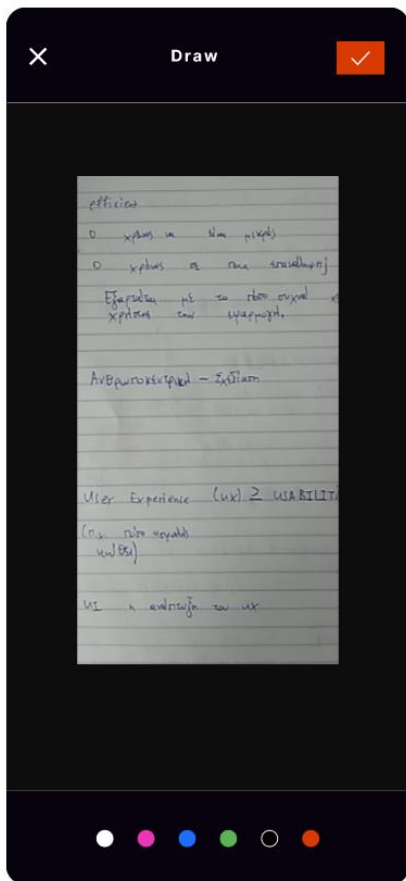 Draw
efficien
Ο χρόνος να είναι μικρός
Ο χρόνος σε ποια επανάληψη
Εξαρτάται με το πόσο συχνά
χρήστης την εφαρμογή.
Ανθρωποκεντρική – Σχεδίαση
User Experience (UX) ≥ USABILIT
(π.χ. πόσο
UI η ανάπτυξη του UX